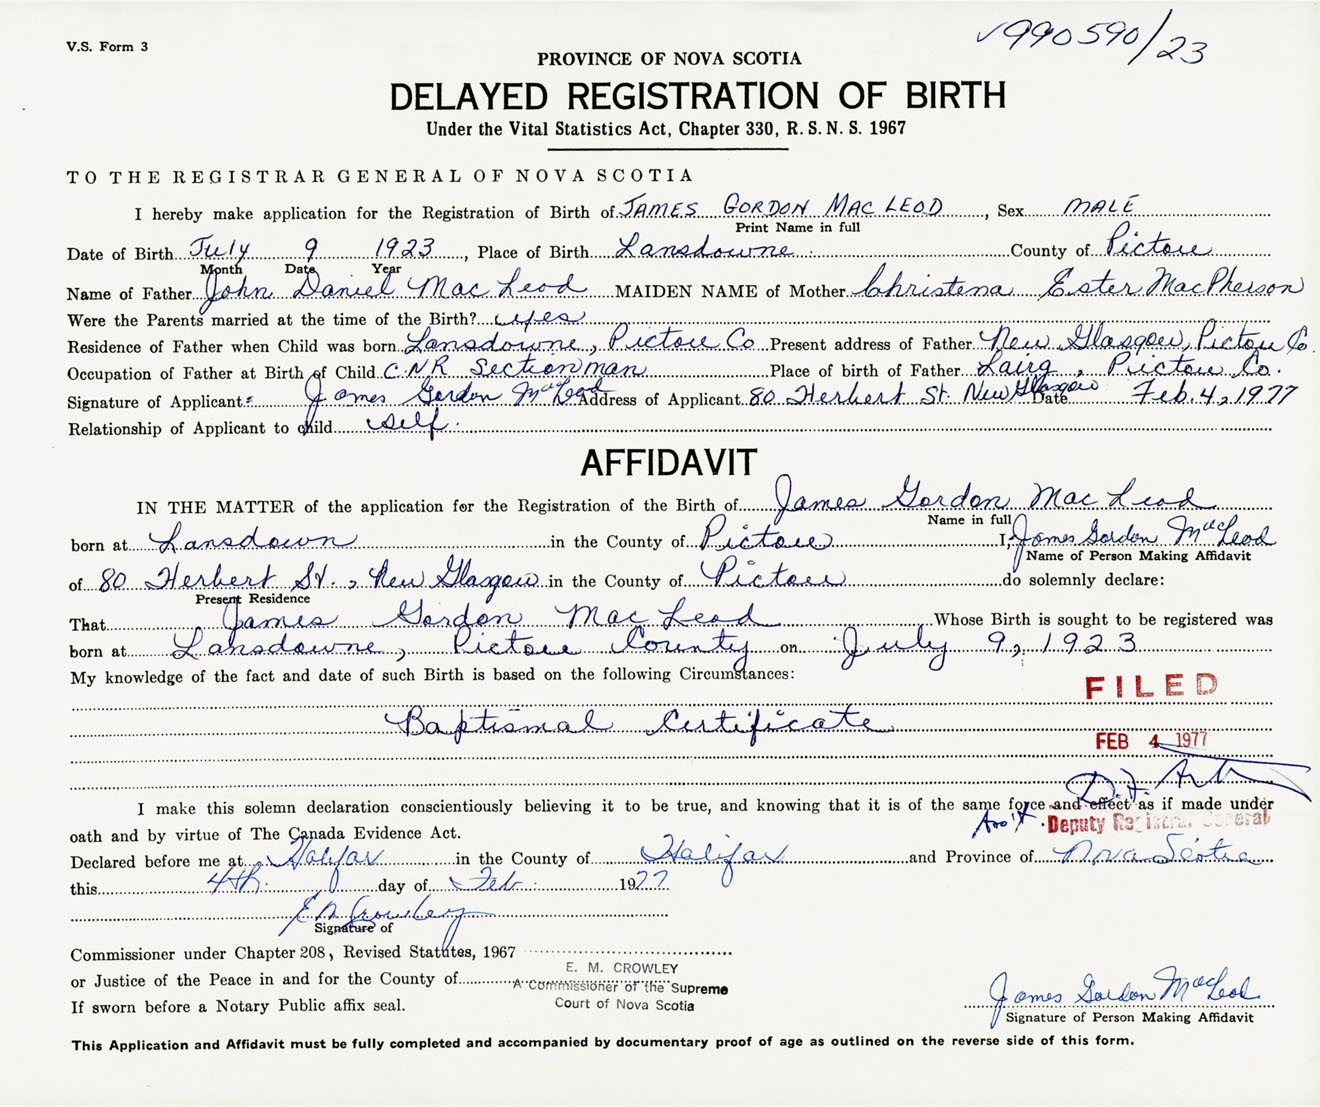 V.S. Form 3
✓990590/23
PROVINCE OF NOVA SCOTIA
DELAYED REGISTRATION OF BIRTH
Under the Vital Statistics Act, Chapter 330, R. S. N. S. 1967
TO THE REGISTRAR GENERAL OF NOVA SCOTIA
I hereby make application for the Registration of Birth of JAMES GORDON MAC LEOD, Sex MALE
Print Name in full
Date of Birth July 9 1923, Place of Birth Lansdowne County of Pictou
Month Date Year
Name of Father John Daniel Mac Leod MAIDEN NAME of Mother Christena Ester MacPherson
Were the Parents married at the time of the Birth? yes
Residence of Father when Child was born Lansdowne, Pictou Co Present address of Father New Glasgow, Pictou Co.
Occupation of Father at Birth of Child C.N.R Sectionman Place of birth of Father Lairg, Pictou Co.
Signature of Applicant: James Gordon MacLeod Address of Applicant 80 Herbert St. New Glasgow Date Feb. 4, 1977
Relationship of Applicant to child self.
AFFIDAVIT
IN THE MATTER of the application for the Registration of the Birth of James Gordon Mac Leod
Name in full
born at Lansdown in the County of Pictou I, James Gordon MacLeod
Name of Person Making Affidavit
of 80 Herbert St., New Glasgow in the County of Pictou do solemnly declare:
Present Residence
That James Gordon Mac Leod Whose Birth is sought to be registered was
born at Lansdowne, Pictou County on July 9, 1923
My knowledge of the fact and date of such Birth is based on the following Circumstances:
FILED
Baptismal Certificate
FEB 4 1977
I make this solemn declaration conscientiously believing it to be true, and knowing that it is of the same force and effect as if made under
Deputy Registrar General
oath and by virtue of The Canada Evidence Act.
Declared before me at Halifax in the County of Halifax and Province of Nova Scotia
this 4th. day of Feb. 1977
E M Crowley
Signature of
Commissioner under Chapter 208, Revised Statutes, 1967
E. M. CROWLEY
or Justice of the Peace in and for the County of
A Commissioner of the Supreme
Court of Nova Scotia
If sworn before a Notary Public affix seal.
James Gordon MacLeod
Signature of Person Making Affidavit
This Application and Affidavit must be fully completed and accompanied by documentary proof of age as outlined on the reverse side of this form.